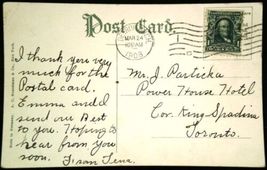 Post Card.
MAR 24
1908
I thank you very
much for the
Postal card.
Emma and I
send our Best
to you. Hoping to
hear from you
soon.
From Lena.
Mr. J. Particka
Power House Hotel
Cor. King Spadina
Toronto.